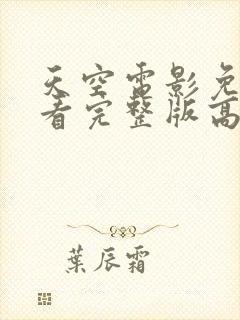 天空雷影免
看完整版高
葉辰霜